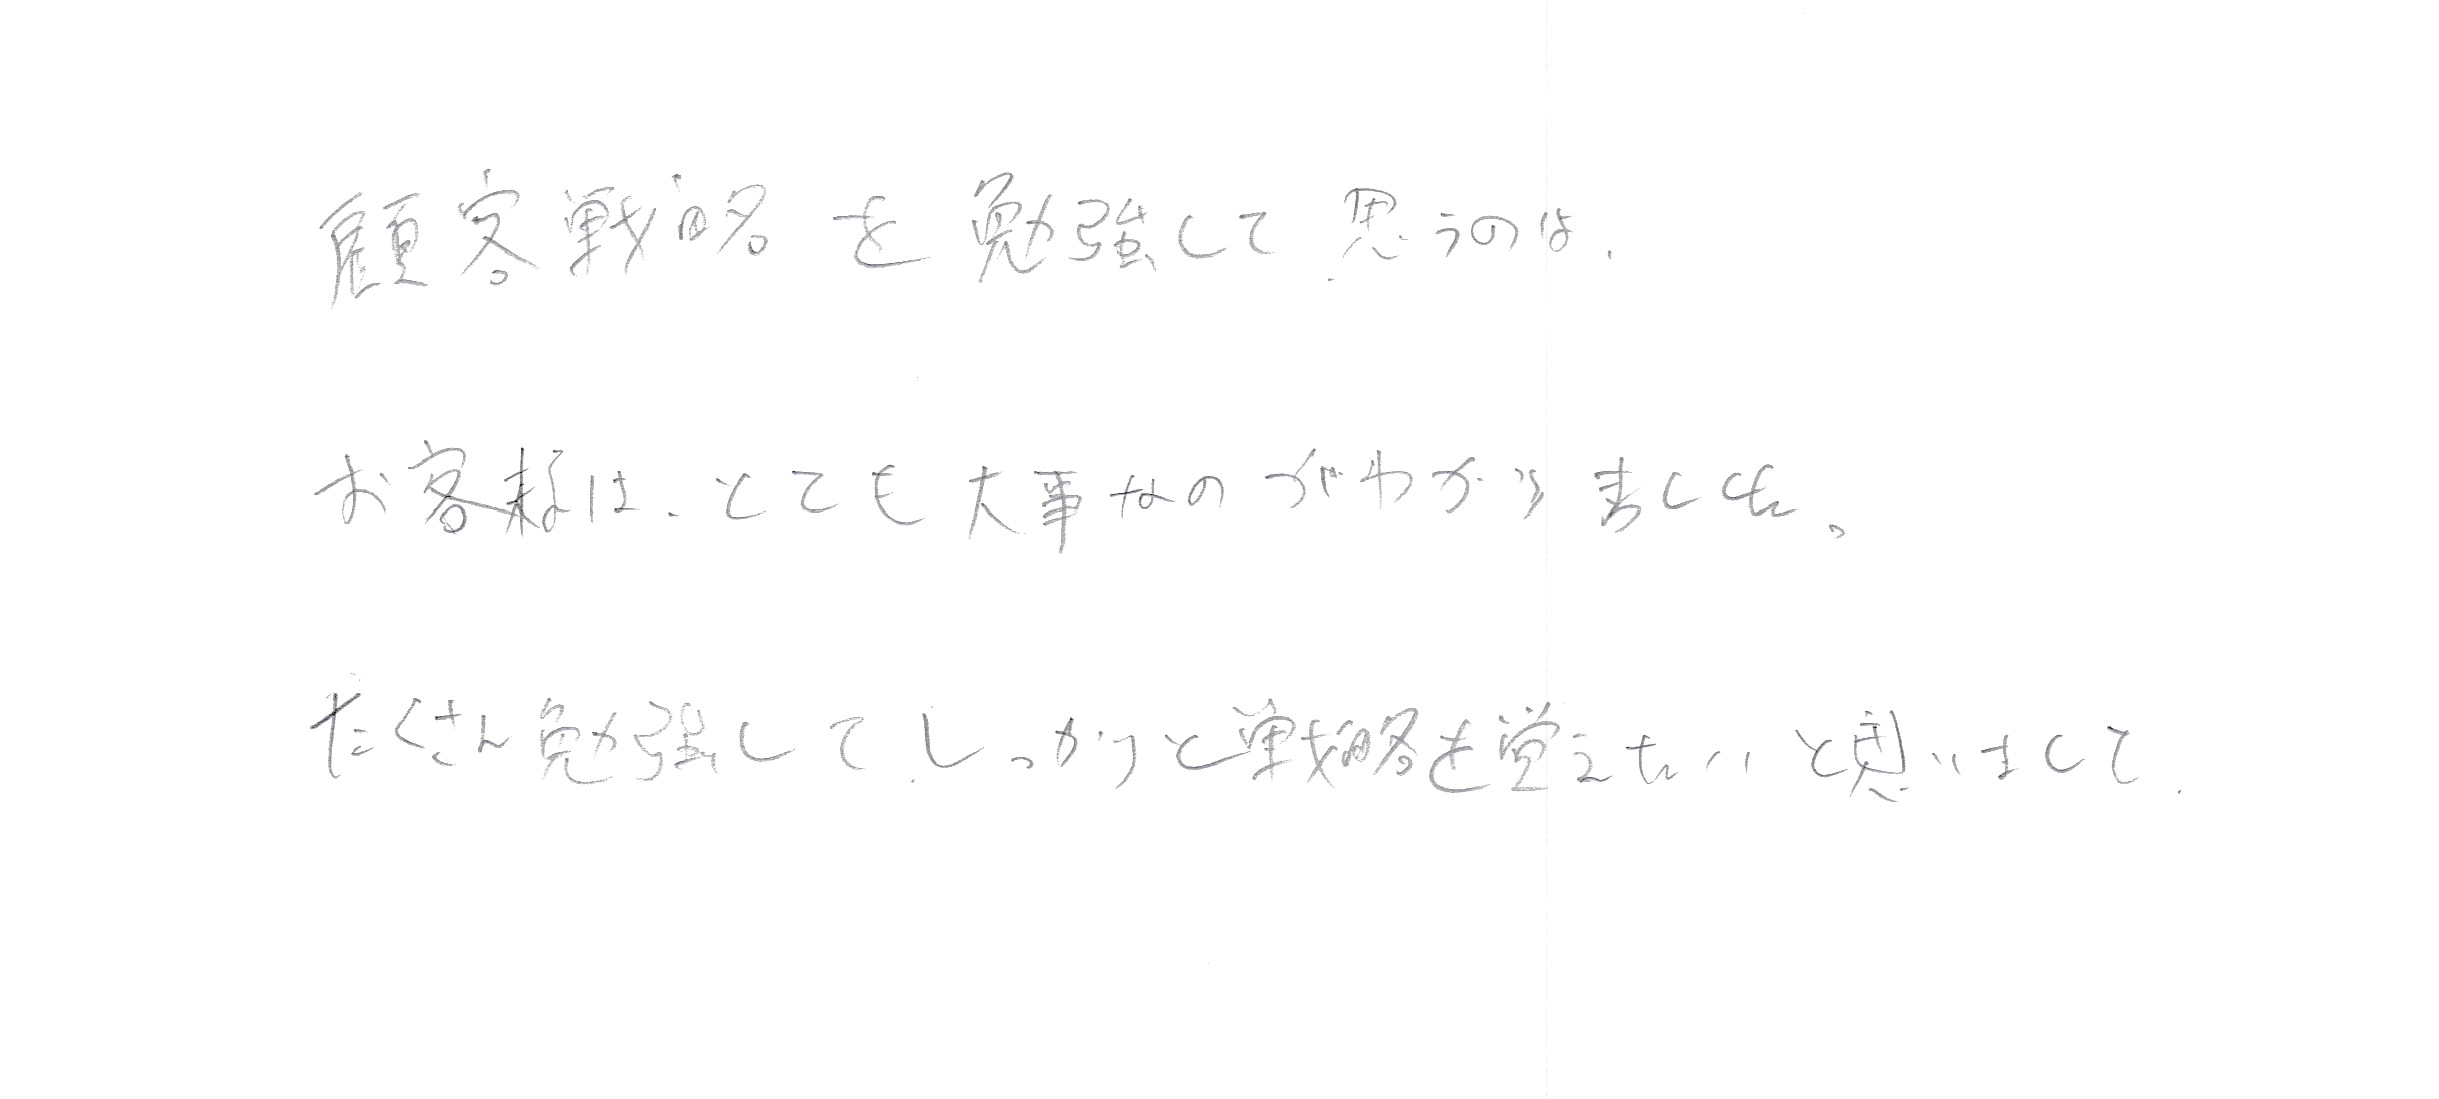 顧客戦略を勉強して思うのは、
お客様は、とても大事なのがわかりました。
たくさん勉強してしっかりと戦略を覚えたいと思いまして、